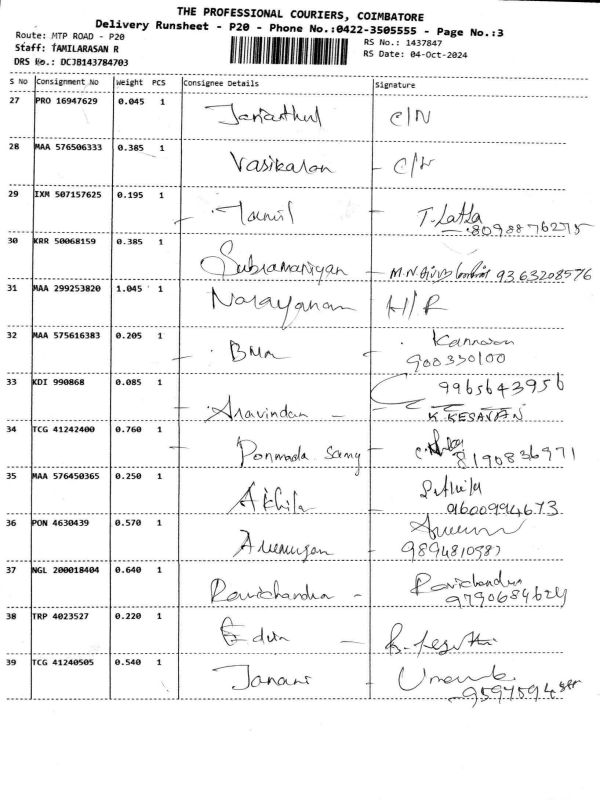 THE PROFESSIONAL COURIERS, COIMBATORE
Delivery Runsheet - P20 - Phone No.:0422-3505555 - Page No.:3
Route: MTP ROAD - P20
RS No.: 1437847
Staff: TAMILARASAN R
RS Date: 04-Oct-2024
DRS No.: DCJB143784703
S No Consignment No Weight PCS Consignee Details Signature
27 PRO 16947629 0.045 1 C/N
28 MAA 576506333 0.385 1 Vasikaran - C/N
29 IXM 507157625 0.195 1 - Tamil - T. Latha
8098876275
30 KRR 50068159 0.385 1 Subramaniyan - M.N. 9363208576
31 MAA 299253820 1.045 1 Narayanan H/R
32 MAA 575616383 0.205 1 - - Kannan
900330100
33 KDI 990868 0.085 1 - Aravindan - 9965643956
K. KESAVAN
34 TCG 41242400 0.760 1 - Ponmada Samy - 8190836971
35 MAA 576450365 0.250 1 Akhila
9600994673
36 PON 4630439 0.570 1 Arumugam -
9894810987
37 NGL 200018404 0.640 1 Ravichandra - Ravichandra
9790684624
38 TRP 4023527 0.220 1 -
39 TCG 41240505 0.540 1 Janani -
9597594